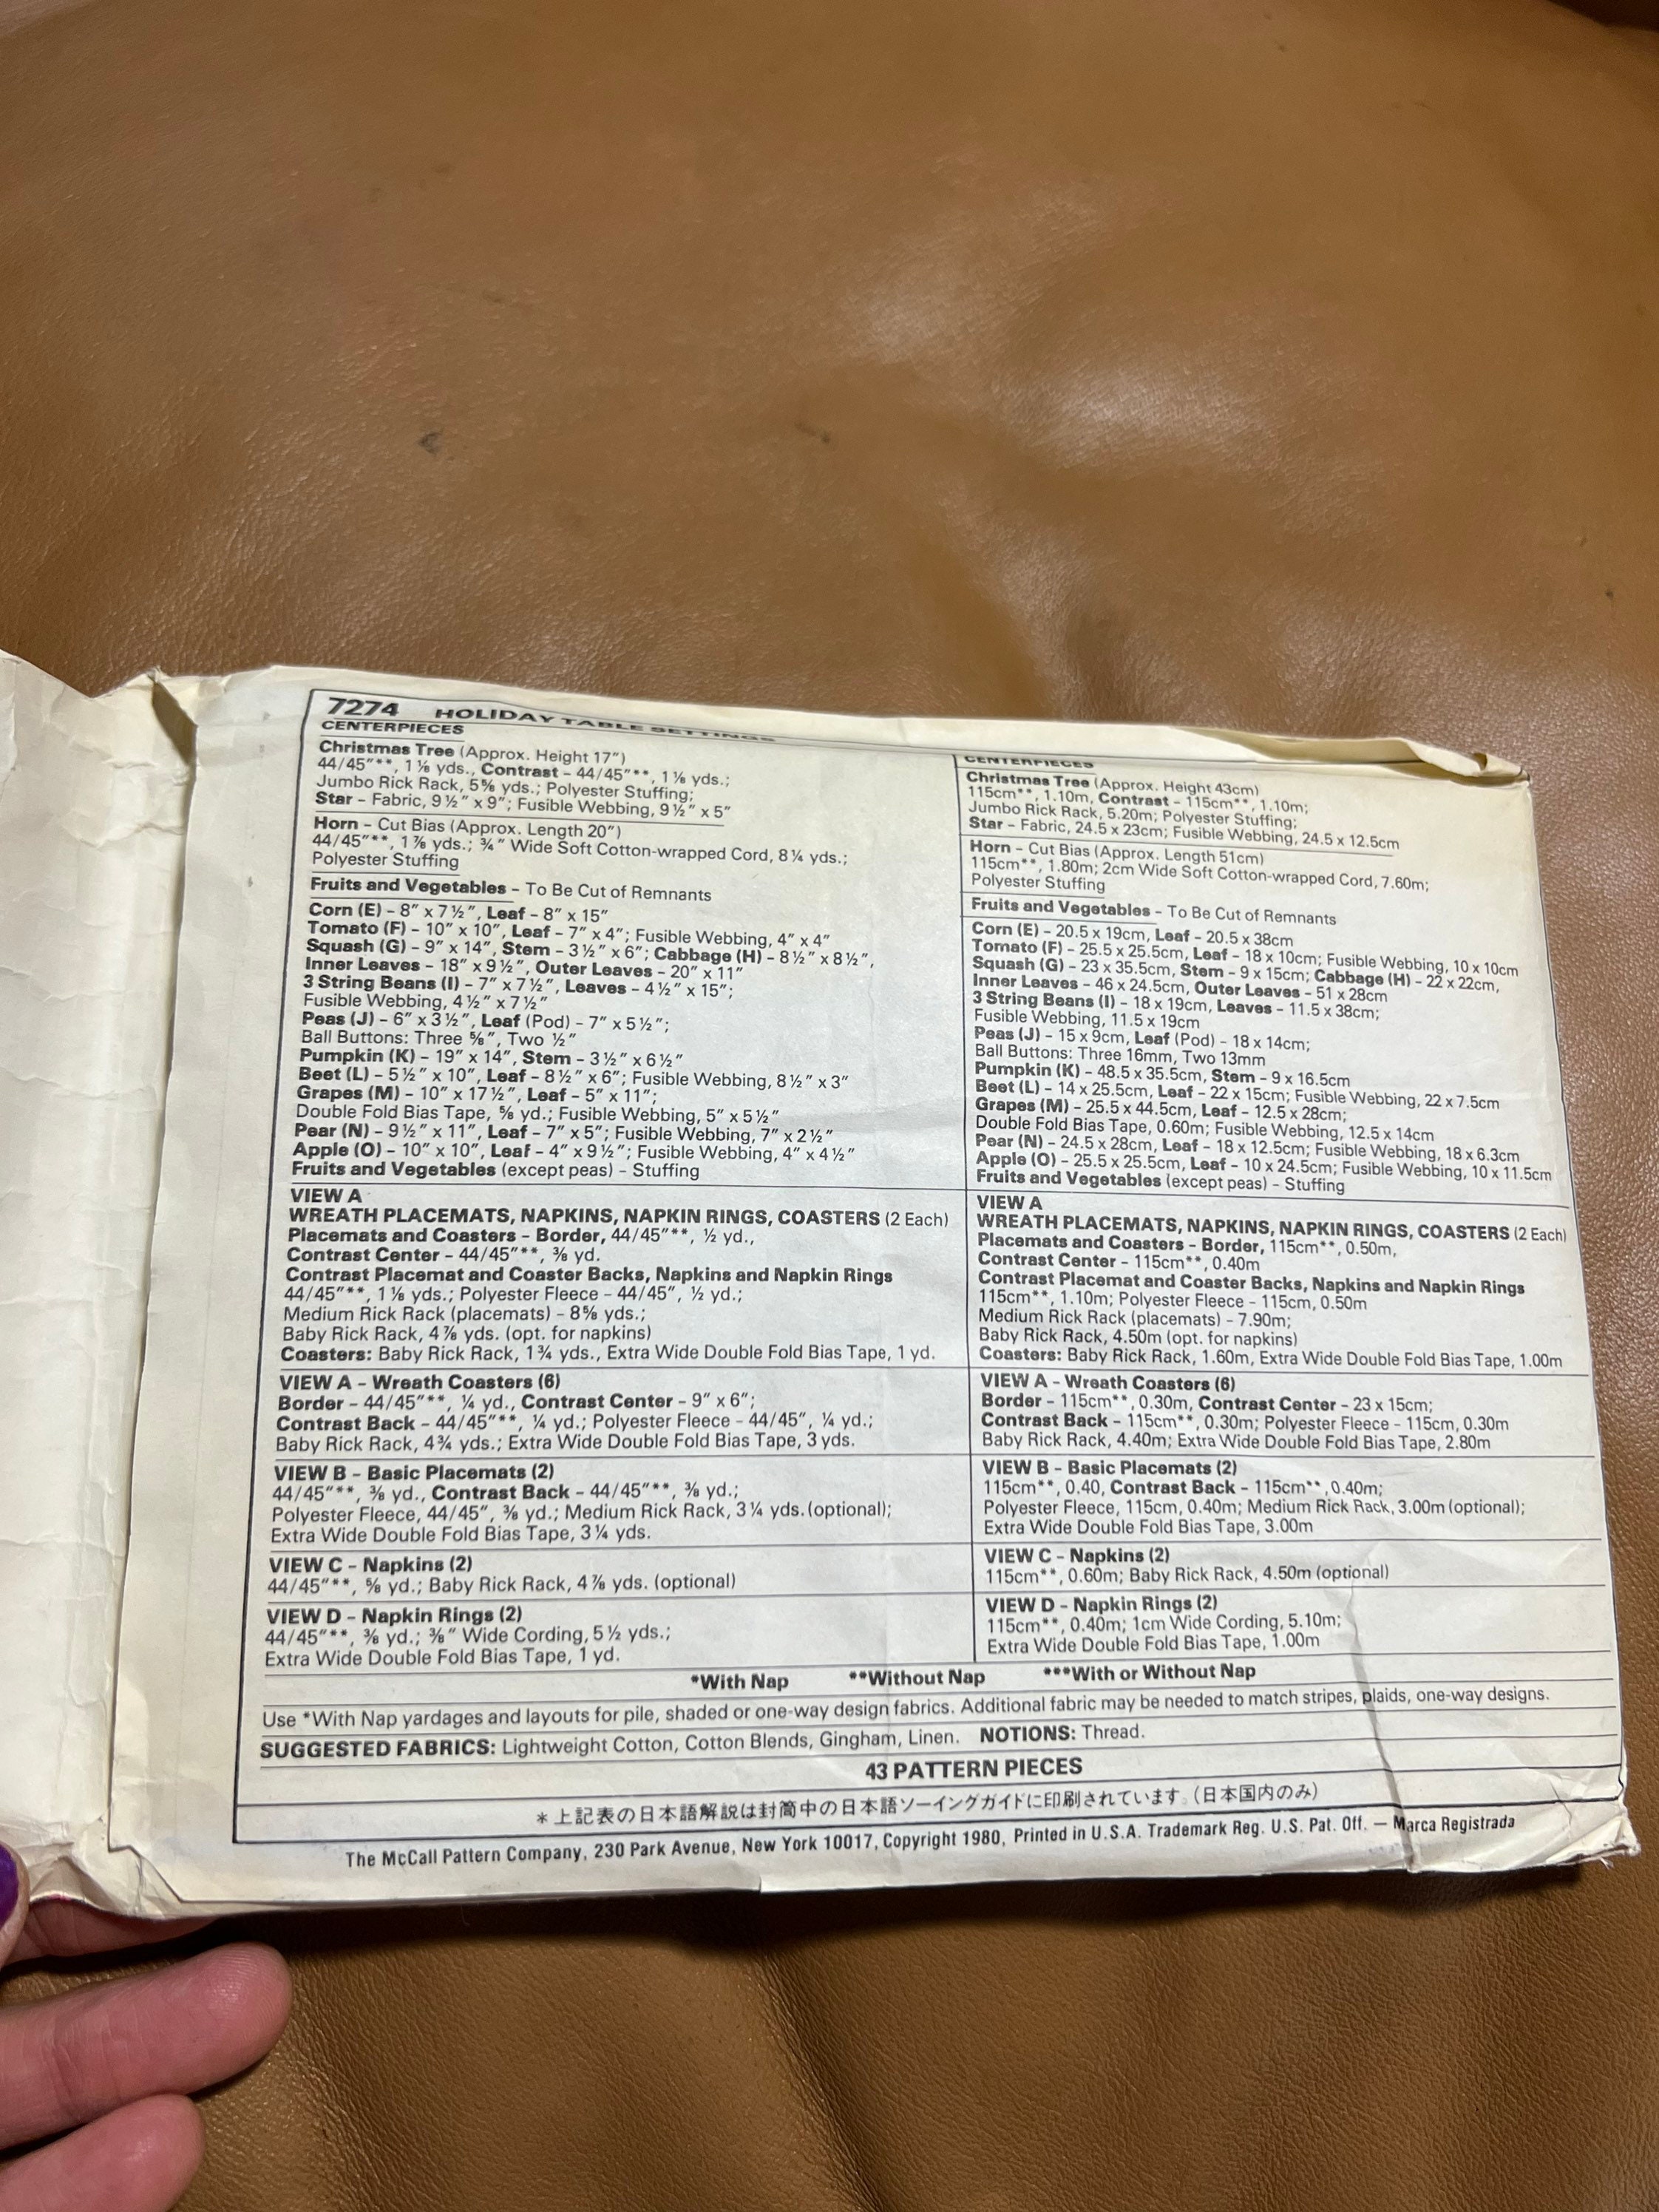 7274 HOLIDAY TABLE SETTINGS
CENTERPIECES
Christmas Tree (Approx. Height 17″)
44/45″**, 1⅛ yds., Contrast – 44/45″**, 1⅛ yds.;
Jumbo Rick Rack, 5⅝ yds.; Polyester Stuffing;
Star – Fabric, 9½″ x 9″; Fusible Webbing, 9½″ x 5″
Horn – Cut Bias (Approx. Length 20″)
44/45″**, 1⅞ yds.; ¾″ Wide Soft Cotton-wrapped Cord, 8¼ yds.;
Polyester Stuffing
Fruits and Vegetables – To Be Cut of Remnants
Corn (E) – 8″ x 7½″, Leaf – 8″ x 15″
Tomato (F) – 10″ x 10″, Leaf – 7″ x 4″; Fusible Webbing, 4″ x 4″
Squash (G) – 9″ x 14″, Stem – 3½″ x 6″; Cabbage (H) – 8½″ x 8½″,
Inner Leaves – 18″ x 9½″, Outer Leaves – 20″ x 11″
3 String Beans (I) – 7″ x 7½″, Leaves – 4½″ x 15″;
Fusible Webbing, 4½″ x 7½″
Peas (J) – 6″ x 3½″, Leaf (Pod) – 7″ x 5½″;
Ball Buttons: Three ⅝″, Two ½″
Pumpkin (K) – 19″ x 14″, Stem – 3½″ x 6½″
Beet (L) – 5½″ x 10″, Leaf – 8½″ x 6″; Fusible Webbing, 8½″ x 3″
Grapes (M) – 10″ x 17½″, Leaf – 5″ x 11″;
Double Fold Bias Tape, ⅝ yd.; Fusible Webbing, 5″ x 5½″
Pear (N) – 9½″ x 11″, Leaf – 7″ x 5″; Fusible Webbing, 7″ x 2½″
Apple (O) – 10″ x 10″, Leaf – 4″ x 9½″; Fusible Webbing, 4″ x 4½″
Fruits and Vegetables (except peas) – Stuffing
VIEW A
WREATH PLACEMATS, NAPKINS, NAPKIN RINGS, COASTERS (2 Each)
Placemats and Coasters – Border, 44/45″**, ½ yd.,
Contrast Center – 44/45″**, ⅜ yd.
Contrast Placemat and Coaster Backs, Napkins and Napkin Rings
44/45″**, 1⅛ yds.; Polyester Fleece – 44/45″, ½ yd.;
Medium Rick Rack (placemats) – 8⅝ yds.;
Baby Rick Rack, 4⅞ yds. (opt. for napkins)
Coasters: Baby Rick Rack, 1¾ yds., Extra Wide Double Fold Bias Tape, 1 yd.
VIEW A – Wreath Coasters (6)
Border – 44/45″**, ¼ yd., Contrast Center – 9″ x 6″;
Contrast Back – 44/45″**, ¼ yd.; Polyester Fleece – 44/45″, ¼ yd.;
Baby Rick Rack, 4¾ yds.; Extra Wide Double Fold Bias Tape, 3 yds.
VIEW B – Basic Placemats (2)
44/45″**, ⅜ yd., Contrast Back – 44/45″**, ⅜ yd.;
Polyester Fleece, 44/45″, ⅜ yd.; Medium Rick Rack, 3¼ yds. (optional);
Extra Wide Double Fold Bias Tape, 3¼ yds.
VIEW C – Napkins (2)
44/45″**, ⅝ yd.; Baby Rick Rack, 4⅞ yds. (optional)
VIEW D – Napkin Rings (2)
44/45″**, ⅜ yd.; ⅜″ Wide Cording, 5½ yds.;
Extra Wide Double Fold Bias Tape, 1 yd.
CENTERPIECES
Christmas Tree (Approx. Height 43cm)
115cm**, 1.10m, Contrast – 115cm**, 1.10m;
Jumbo Rick Rack, 5.20m; Polyester Stuffing;
Star – Fabric, 24.5 x 23cm; Fusible Webbing, 24.5 x 12.5cm
Horn – Cut Bias (Approx. Length 51cm)
115cm**, 1.80m; 2cm Wide Soft Cotton-wrapped Cord, 7.60m;
Polyester Stuffing
Fruits and Vegetables – To Be Cut of Remnants
Corn (E) – 20.5 x 19cm, Leaf – 20.5 x 38cm
Tomato (F) – 25.5 x 25.5cm, Leaf – 18 x 10cm; Fusible Webbing, 10 x 10cm
Squash (G) – 23 x 35.5cm, Stem – 9 x 15cm; Cabbage (H) – 22 x 22cm,
Inner Leaves – 46 x 24.5cm, Outer Leaves – 51 x 28cm
3 String Beans (I) – 18 x 19cm, Leaves – 11.5 x 38cm;
Fusible Webbing, 11.5 x 19cm
Peas (J) – 15 x 9cm, Leaf (Pod) – 18 x 14cm;
Ball Buttons: Three 16mm, Two 13mm
Pumpkin (K) – 48.5 x 35.5cm, Stem – 9 x 16.5cm
Beet (L) – 14 x 25.5cm, Leaf – 22 x 15cm; Fusible Webbing, 22 x 7.5cm
Grapes (M) – 25.5 x 44.5cm, Leaf – 12.5 x 28cm;
Double Fold Bias Tape, 0.60m; Fusible Webbing, 12.5 x 14cm
Pear (N) – 24.5 x 28cm, Leaf – 18 x 12.5cm; Fusible Webbing, 18 x 6.3cm
Apple (O) – 25.5 x 25.5cm, Leaf – 10 x 24.5cm; Fusible Webbing, 10 x 11.5cm
Fruits and Vegetables (except peas) – Stuffing
VIEW A
WREATH PLACEMATS, NAPKINS, NAPKIN RINGS, COASTERS (2 Each)
Placemats and Coasters – Border, 115cm**, 0.50m,
Contrast Center – 115cm**, 0.40m
Contrast Placemat and Coaster Backs, Napkins and Napkin Rings
115cm**, 1.10m; Polyester Fleece – 115cm, 0.50m
Medium Rick Rack (placemats) – 7.90m;
Baby Rick Rack, 4.50m (opt. for napkins)
Coasters: Baby Rick Rack, 1.60m, Extra Wide Double Fold Bias Tape, 1.00m
VIEW A – Wreath Coasters (6)
Border – 115cm**, 0.30m, Contrast Center – 23 x 15cm;
Contrast Back – 115cm**, 0.30m; Polyester Fleece – 115cm, 0.30m
Baby Rick Rack, 4.40m; Extra Wide Double Fold Bias Tape, 2.80m
VIEW B – Basic Placemats (2)
115cm**, 0.40, Contrast Back – 115cm**, 0.40m;
Polyester Fleece, 115cm, 0.40m; Medium Rick Rack, 3.00m (optional);
Extra Wide Double Fold Bias Tape, 3.00m
VIEW C – Napkins (2)
115cm**, 0.60m; Baby Rick Rack, 4.50m (optional)
VIEW D – Napkin Rings (2)
115cm**, 0.40m; 1cm Wide Cording, 5.10m;
Extra Wide Double Fold Bias Tape, 1.00m
*With Nap **Without Nap ***With or Without Nap
Use *With Nap yardages and layouts for pile, shaded or one-way design fabrics. Additional fabric may be needed to match stripes, plaids, one-way designs.
SUGGESTED FABRICS: Lightweight Cotton, Cotton Blends, Gingham, Linen. NOTIONS: Thread.
43 PATTERN PIECES
*上記表の日本語解説は封筒中の日本語ソーイングガイドに印刷されています。(日本国内のみ)
The McCall Pattern Company, 230 Park Avenue, New York 10017, Copyright 1980, Printed in U.S.A. Trademark Reg. U.S. Pat. Off. — Marca Registrada